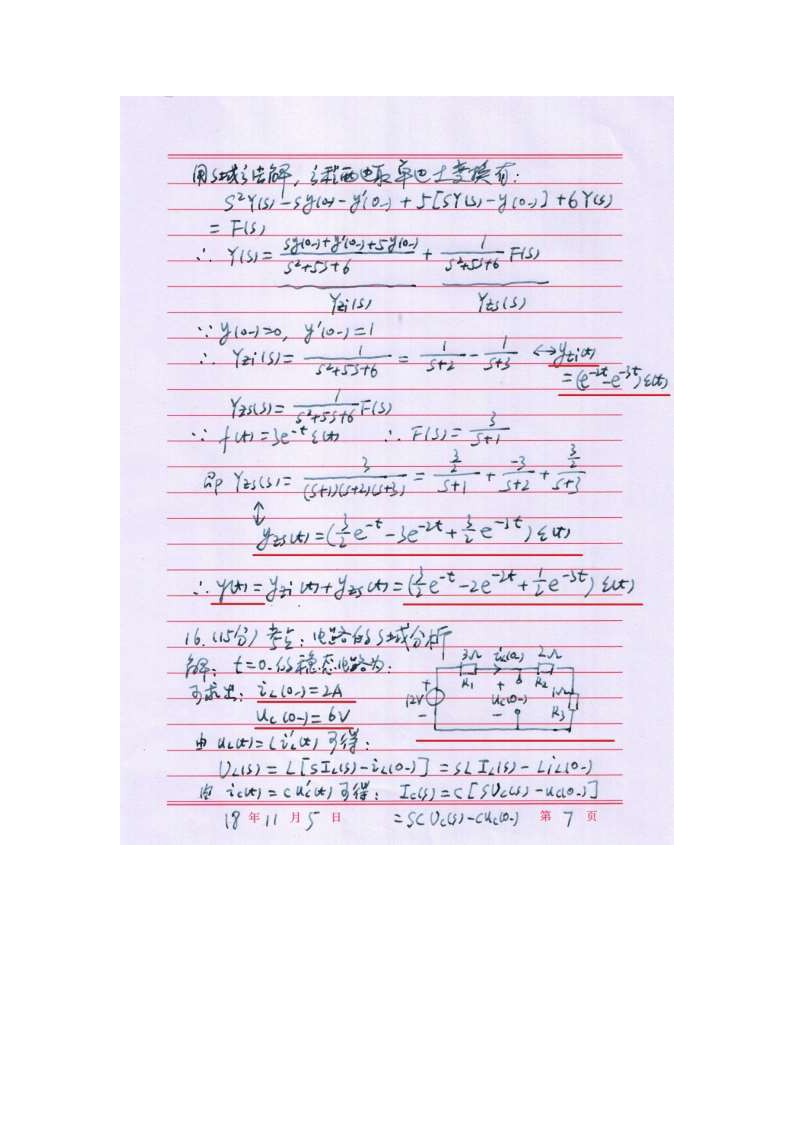 用S域法解，方程两边取单边L变换有：
S²Y(s)-Sy(0-)-y'(0-)+5[SY(s)-y(0-)]+6Y(s)
=F(s)
∴ Y(s)= (Sy(0-)+y'(0-)+5y(0-))/(S²+5S+6) + 1/(S²+5S+6) F(s)
Yzi(s) Yzs(s)
∵ y(0-)=0, y'(0-)=1
∴ Yzi(s)= 1/(S²+5S+6) = 1/(S+2) - 1/(S+3) ↔ yzi(t)
=(e^-2t-e^-3t)ε(t)
Yzs(s)= 1/(S²+5S+6) F(s)
∵ f(t)=3e^-t ε(t) ∴ F(s)= 3/(S+1)
即 Yzs(s)= 3/((S+1)(S+2)(S+3)) = (3/2)/(S+1) + -3/(S+2) + (3/2)/(S+3)
↕
yzs(t)=(3/2 e^-t -3e^-2t + 3/2 e^-3t) ε(t)
∴ y(t)=yzi(t)+yzs(t)=(3/2 e^-t -2e^-2t + 1/2 e^-3t) ε(t)
16.(15分) 考点：电路的S域分析
解：t=0-的稳态电路为：
可求出：iL(0-)=2A
uc(0-)=6V
3Ω iL(0-) 2Ω
R1 R2
12V + - + uc(0-) - 1Ω R3
由 uL(t)=L i'L(t) 可得：
UL(s)=L[SIL(s)-iL(0-)]=SLIL(s)-LiL(0-)
由 ic(t)=Cu'c(t) 可得：Ic(s)=C[SUc(s)-uc(0-)]
=SCUc(s)-Cuc(0-)
18年11月5日 第7页